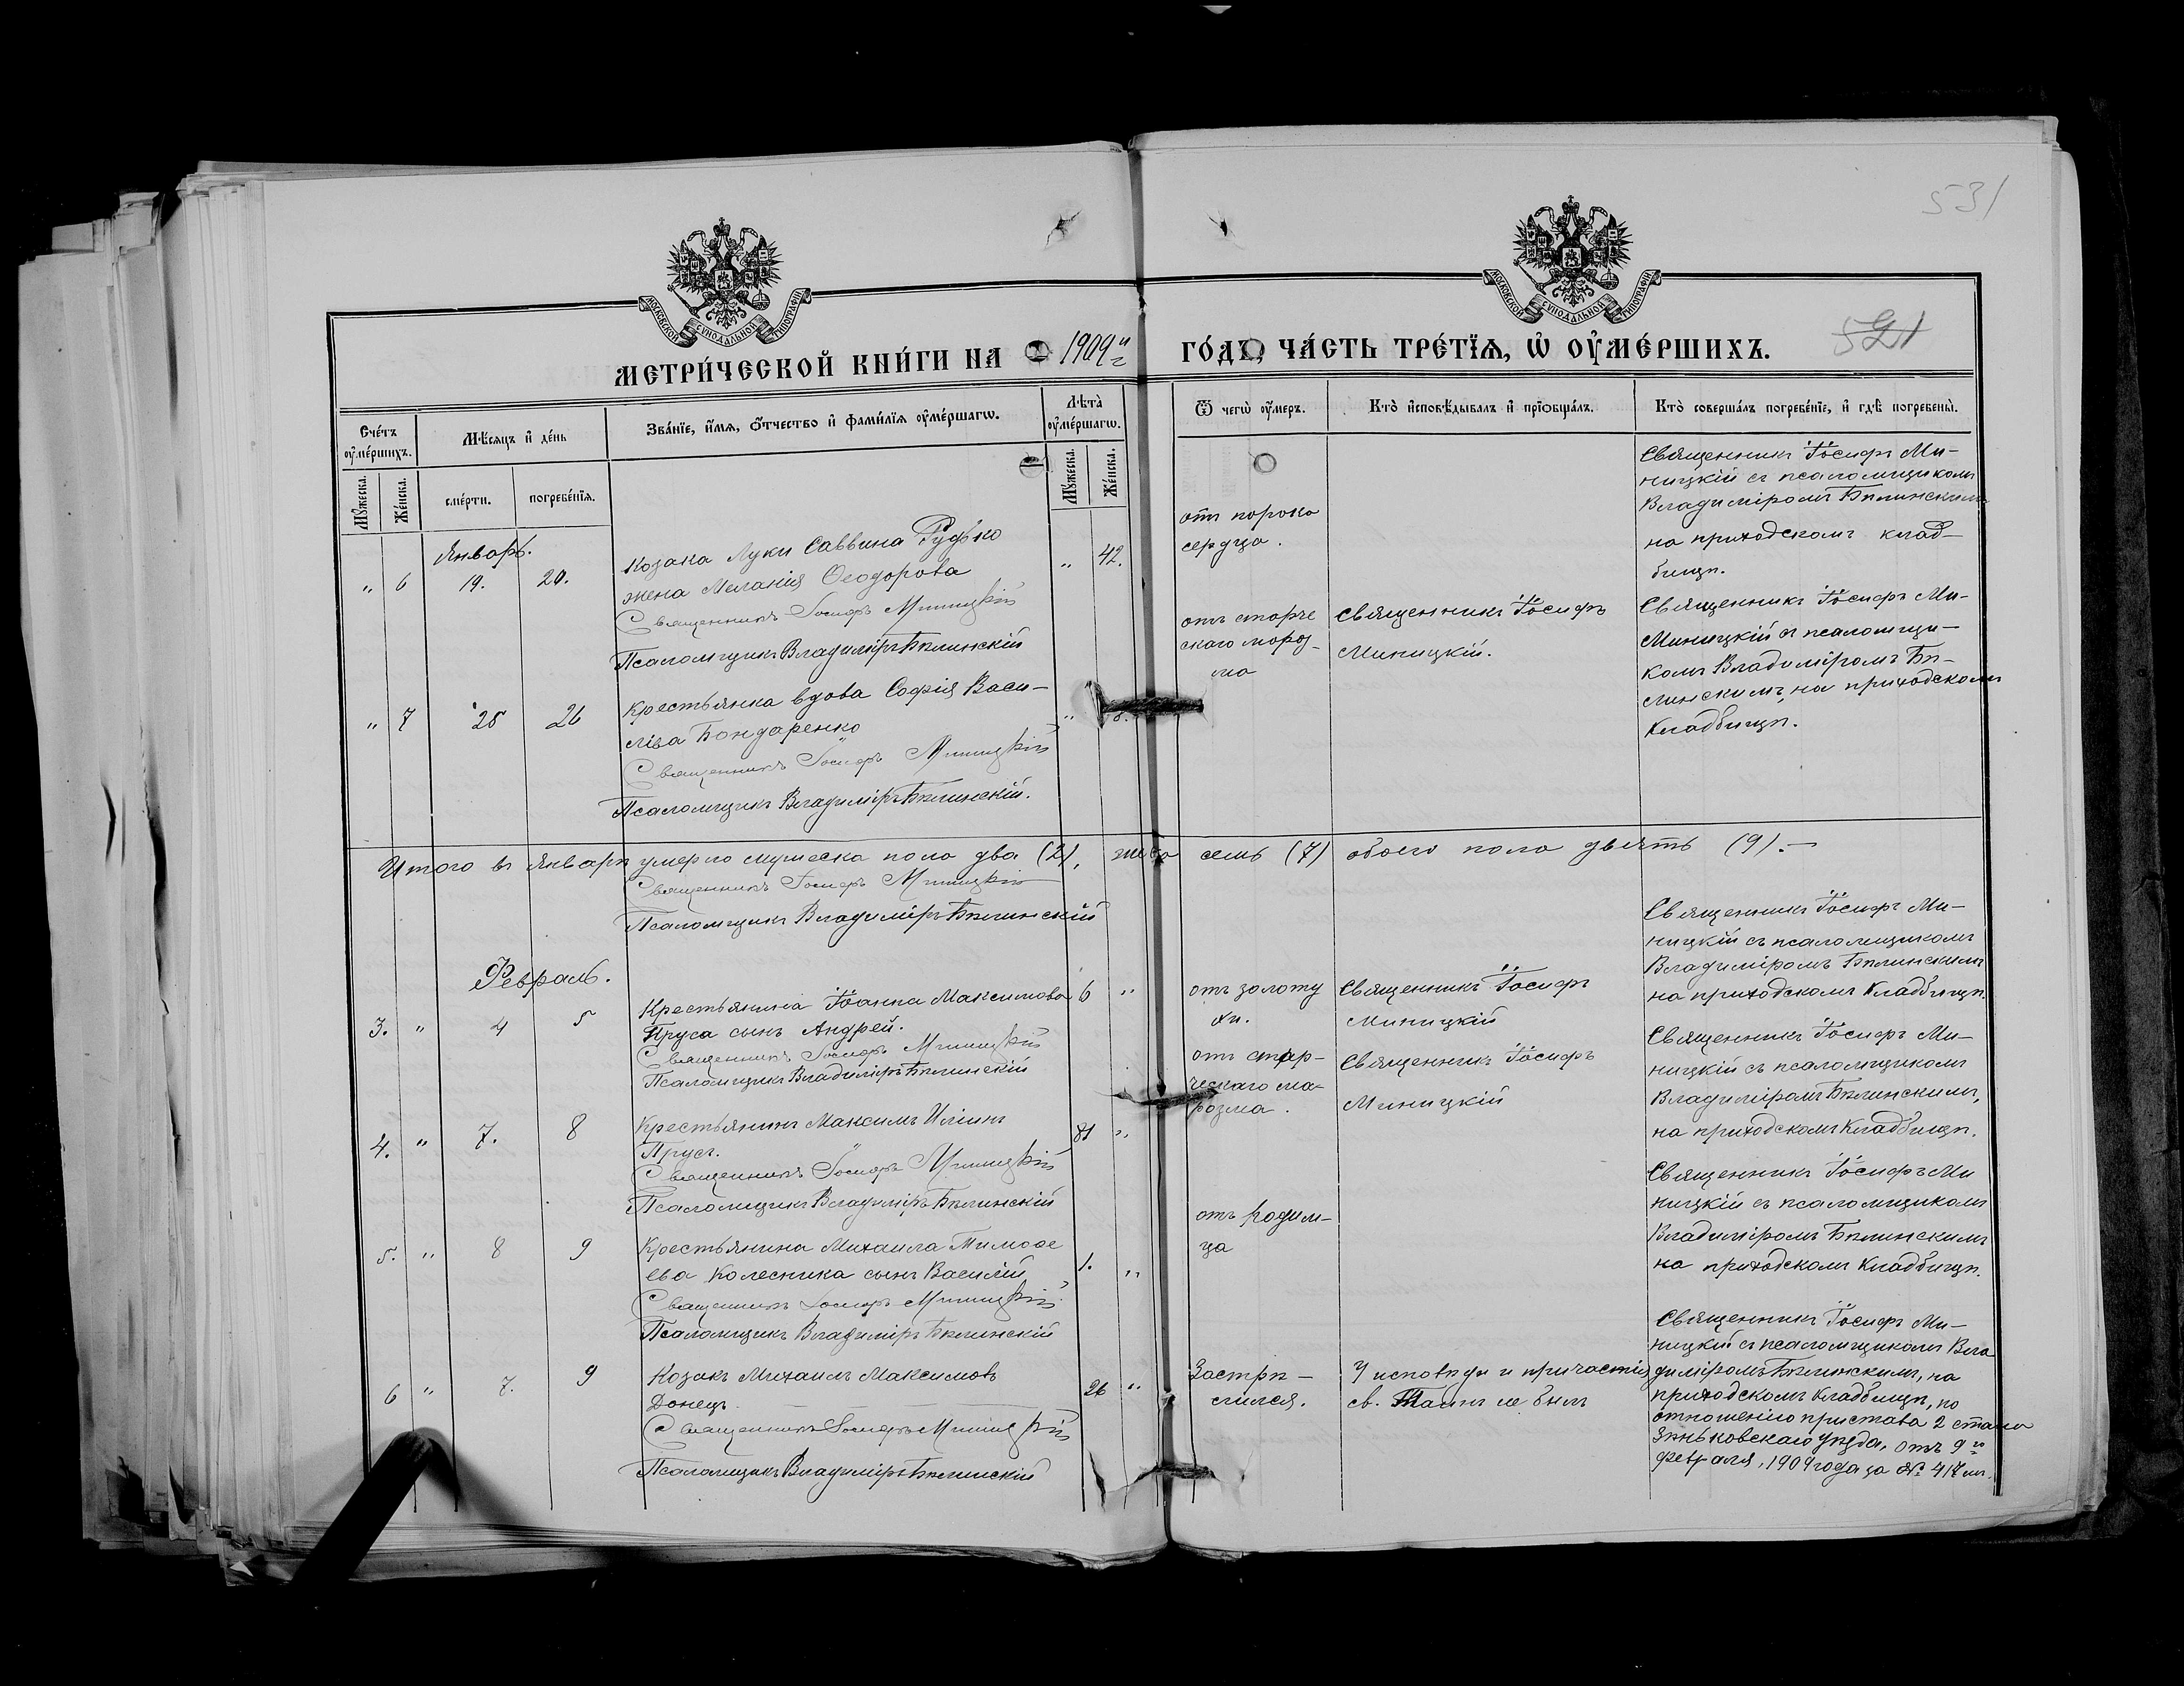 531
МОСКОВСКОЙ СУНОДАЛЬНОЙ ТИПОГРАФІИ
МОСКОВСКОЙ СУНОДАЛЬНОЙ ТИПОГРАФІИ
МЕТРИ́ЧЕСКОЙ КНИ́ГИ НА 1909й ГО́ДЪ, ЧА́СТЬ ТРЕ́ТЇѦ, Ѡ ОУ҆МЕ́РШИХЪ.
521
Сче́тъ оу҆ме́ршихъ.
Мѣ́сяцъ и҆ де́нь
Зва́нїе, и҆́мѧ, ѻ҆́тчество и҆ фами́лїѧ оу҆ме́ршагѡ.
Лѣ́та̀ оу҆ме́ршагѡ.
Ѿ чегѡ̀ оу҆́меръ.
Кто̀ и҆сповѣ́дывалъ и҆ прїѡбща́лъ.
Кто̀ соверша́лъ погребе́нїе, и҆ гдѣ̀ погребены̀.
Мꙋ́жеска.
Же́нска.
сме́рти.
погребе́нїѧ.
Мꙋ́жеска.
Же́нска.
Январь.
" 6 19. 20.
Козака Луки Саввина Рудько
жена Меланія Ѳеодорова
Священникъ Іосифъ Миницкій
Псаломщикъ Владиміръ Бѣлинскій
" 42.
отъ порока
сердца.
Священникъ Іосифъ Ми-
ницкій съ псаломщикомъ
Владиміромъ Бѣлинскимъ
на приходскомъ клад-
бищѣ.
" 7 25 26
Крестьянка вдова Софія Васи-
ліва Бондаренко
Священникъ Іосифъ Миницкій
Псаломщикъ Владиміръ Бѣлинскій.
"
отъ старче
скаго мораз-
ма
Священникъ Іосифъ
Миницкій.
Священникъ Іосифъ Ми-
Миницкій съ псаломщи-
комъ Владиміромъ Бѣ-
линскимъ, на приходскомъ
Кладбищѣ.
Итого въ Январѣ умерло мужеска пола два (2), женска семь (7) обоего пола девять (9).—
Священникъ Іосифъ Миницкій
Псаломщикъ Владиміръ Бѣлинскій
Февраль.
3. " 4 5
Крестьянина Іоанна Максимова
Пруса сынъ Андрей.
Священникъ Іосифъ Миницкій
Псаломщикъ Владиміръ Бѣлинскій
6 "
отъ золоту
хи.
Священникъ Іосифъ
Миницкій
Священникъ Іосифъ Ми-
ницкій съ псаломщикомъ
Владиміромъ Бѣлинскимъ
на приходскомъ Кладбищѣ.
4. " 7. 8
Крестьянинъ Максимъ Иліинъ
Прусъ.
Священникъ Іосифъ Миницкій
Псаломщикъ Владиміръ Бѣлинскій
81 "
отъ стар-
ческаго ма-
розма.
Священникъ Іосифъ
Миницкій
Священникъ Іосифъ Ми-
ницкій съ псаломщикомъ
Владиміромъ Бѣлинскимъ,
на приходскомъ Кладбищѣ.
5. " 8 9
Крестьянина Михаила Тимоѳе
ева Колесника сынъ Василій
Священникъ Іосифъ Миницкій
Псаломщикъ Владиміръ Бѣлинскій
1. "
отъ родим-
ца
Священникъ Іосифъ Ми
ницкій съ псаломщикомъ
Владиміромъ Бѣлинскимъ
на приходскомъ Кладбищѣ.
6 " 7. 9
Козакъ Михаилъ Максимовъ
Донецъ.
Священникъ Іосифъ Миницкій
Псаломщикъ Владиміръ Бѣлинскій
26 "
Застрѣ-
лился.
У исповѣди и причастія
св. Таинъ не былъ
Священникъ Іосифъ Ми-
ницкій съ псаломщикомъ Вла
диміромъ Бѣлинскимъ, на
приходскомъ Кладбищѣ, по
отношенію пристава 2 стана
Зѣньковскаго уѣзда, отъ 9го
февраля, 1909 года за № 417мъ.